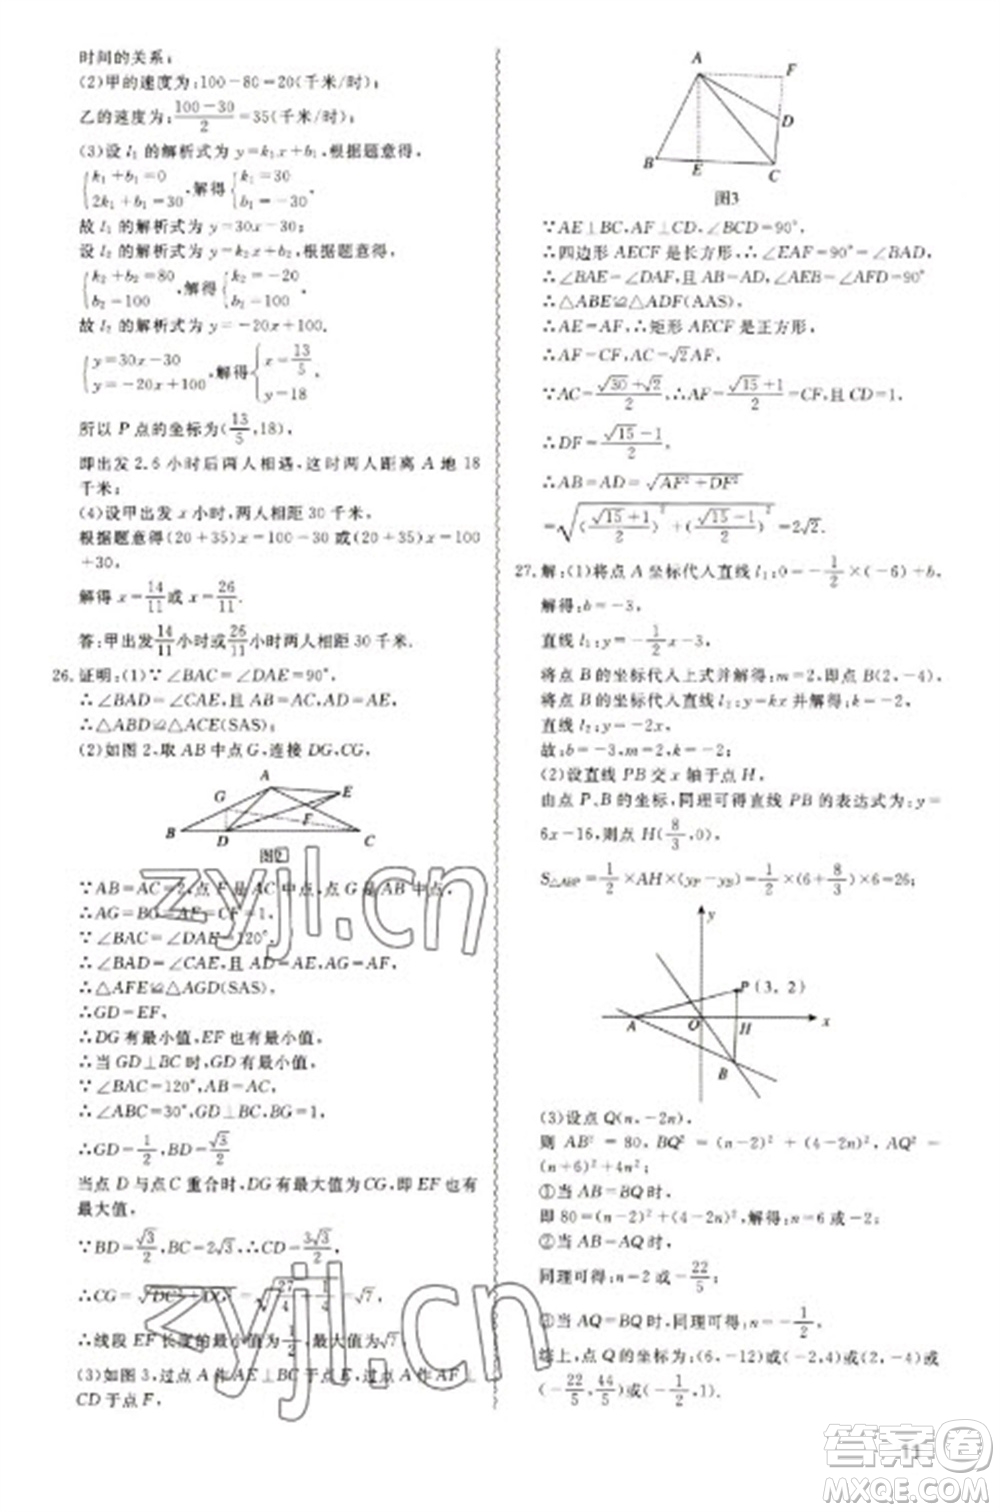 时间的关系;
(2)甲的速度为:100-80=20(千米/时);
乙的速度为:\frac{100-30}{2}=35(千米/时);
(3)设 l₁ 的解析式为 y=k₁x+b₁,根据题意得,
{k₁+b₁=0, 2k₁+b₁=30},解得{k₁=30, b₁=-30}
故 l₁ 的解析式为 y=30x-30;
设 l₂ 的解析式为 y=k₂x+b₂,根据题意得,
{k₂+b₂=80, b₂=100},解得{k₂=-20, b₂=100}
故 l₂ 的解析式为 y=-20x+100;
{y=30x-30, y=-20x+100},解得{x=\frac{13}{5}, y=18}
所以 P 点的坐标为(\frac{13}{5},18),
即出发 2.6 小时后两人相遇,这时两人距离 A 地 18
千米;
(4)设甲出发 x 小时,两人相距 30 千米,
根据题意得(20+35)x=100-30 或(20+35)x=100
+30,
解得 x=\frac{14}{11}或 x=\frac{26}{11}.
答:甲出发\frac{14}{11}小时或\frac{26}{11}小时两人相距 30 千米.
26.证明:(1)∵∠BAC=∠DAE=90°,
∴∠BAD=∠CAE,
∴△ABD≌△ACE(SAS);
(2)如图 2,取 AB 中点 G,连接 DG,CG,
A
E
G
F
B
D
C
图2
∵AB=AC=2,点 F 是 AC 中点,点 G 是 AB 中点,
∴AG=BG=AF=CF=1,
∵∠BAC=∠DAE=120°,
∴∠BAD=∠CAE,且 AD=AE,AG=AF,
∴△AFE≌△AGD(SAS),
∴GD=EF,
∴DG 有最小值,EF 也有最小值,
∴当 GD⊥BC 时,GD 有最小值,
∵∠BAC=120°,AB=AC,
∴∠ABC=30°,GD⊥BC,BG=1,
∴GD=\frac{1}{2},BD=\frac{√3}{2}
当点 D 与点 C 重合时,DG 有最大值为 CG,即 EF 也有
最大值,
∵BD=\frac{√3}{2},BC=2√3,∴CD=\frac{3√3}{2},
∴CG=√(DC²+DG²)=√(\frac{27}{4}+\frac{1}{4})=√7,
∴线段 EF 长度的最小值为\frac{1}{2},最大值为√7
(3)如图 3,过点 A 作 AE⊥BC 于点 E,作 AF⊥
CD 于点 F,
A
F
D
B
E
C
图3
∵AE⊥BC,AF⊥CD,∠BCD=90°,
∴四边形 AECF 是长方形,∴∠EAF=90°=∠BAD,
∴∠BAE=∠DAF,且 AB=AD,∠AEB=∠AFD=90°
∴△ABE≌△ADF(AAS),
∴AE=AF,∴矩形 AECF 是正方形,
∴AF=CF,AC=√2AF,
∵AC=\frac{√30+√2}{2},∴AF=\frac{√15+1}{2}=CF,且 CD=1,
∴DF=\frac{√15-1}{2},
∴AB=AD=√(AF²+DF²)
=√((\frac{√15+1}{2})²+(\frac{√15-1}{2})²)=2√2.
27.解:(1)将点 A 坐标代人直线 l₁:0=-\frac{1}{2}×(-6)+b,
解得:b=-3,
直线 l₁:y=-\frac{1}{2}x-3,
将点 B 的坐标代人上式并解得:m=2,即点 B(2,-4),
将点 B 的坐标代人直线 l₂:y=kx 并解得:k=-2,
直线 l₂:y=-2x,
故:b=-3,m=2,k=-2;
(2)设直线 PB 交 x 轴于点 H,
由点 P、B 的坐标,同理可得直线 PB 的表达式为:y=
6x-16,则点 H(\frac{8}{3},0),
S△ABP=\frac{1}{2}×AH×(yP-yB)=\frac{1}{2}×(6+\frac{8}{3})×6=26;
y
P (3, 2)
A
O
H
x
B
(3)设点 Q(n,-2n),
则 AB²=80,BQ²=(n-2)²+(4-2n)²,AQ²=
(n+6)²+4n²;
①当 AB=BQ 时,
即 80=(n-2)²+(4-2n)²,解得:n=6 或-2;
②当 AB=AQ 时,
同理可得:n=2 或-\frac{22}{5};
③当 AQ=BQ 时,同理可得:n=-\frac{1}{2},
综上,点 Q 的坐标为:(6,-12)或(-2,4)或(2,-4)或
(-\frac{22}{5},\frac{44}{5})或(-\frac{1}{2},1).
zyjl.cn
zyjl.cn
11
答案圈
MXQE.COM